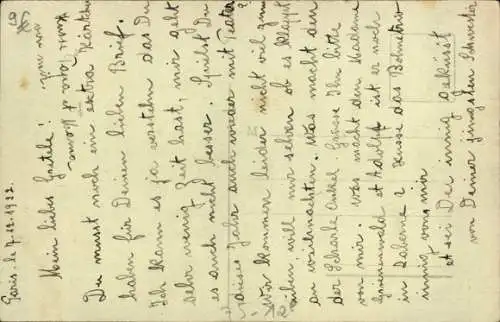 Paris, le 7.12.1932.
Mein liebes Gretele!
Du musst noch ein extra Kärtchen
haben für Deinen lieben Brief.
Ich kann es ja verstehn das Du
sehr wenig Zeit hast, mir geht
es auch nicht besser. Spielst Du
dieses Jahr auch wieder mit Teater?
Wir kommen leider nicht viel zum
üben will mir sehen ob es klappt
an Weihnachten. Was macht den
der Scharle Onkel Grüsse Ihn bitte
von mir. Was macht den Madame
Grünenwald et Adolff ist er noch
in Saberne? Küsse das
innig von mir
et sei Du innig geküsst
von Deiner jüngsten Schwester